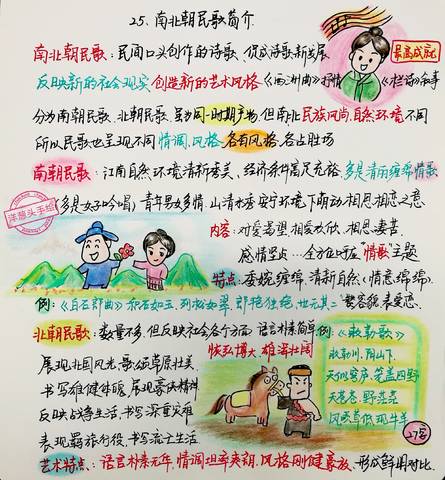 25. 南北朝民歌简介
南北朝民歌: 民间口头创作的诗歌、促成诗歌新发展
最高成就
反映新的社会现实 创造新的艺术风格 《西洲曲》抒情 《木兰诗》叙事
分为南朝民歌、北朝民歌、虽为同一时期产物、但南北民族风尚、自然环境不同
所以民歌也呈现不同情调、风格、各有风格、各占胜场
南朝民歌: 江南自然环境清新秀美、经济条件富足充裕、多是清丽缠绵情歌
(多是女子吟唱) 青年男女多情、山清水秀安宁环境下萌动相思相恋之意
洋葱头手绘
内容: 对爱渴望、相爱欢欣、相思妻苦、
感情坚贞...全方位呼应"情歌"主题
特点: 委婉缠绵、清新自然、情意绵绵
例:《白石郎曲》 积石如玉、列松如翠、郎艳独绝、世无其二
北朝民歌: 数量不多、但反映社会各个方面、语言朴素简单
例:《敕勒歌》
恢弘博大、雄浑壮阔
敕勒川、阴山下、
展现北国风光、歌颂草原壮美
天似穹庐、笼盖四野
书写雄健体魄、展现豪侠精神
天苍苍、野茫茫
反映战争生活、书写深重灾难
风吹草低见牛羊
表现羁旅行役、书写流亡生活
27客
艺术特点: 语言朴素无华、情调坦率爽朗、风格刚健豪放、形成鲜明对比